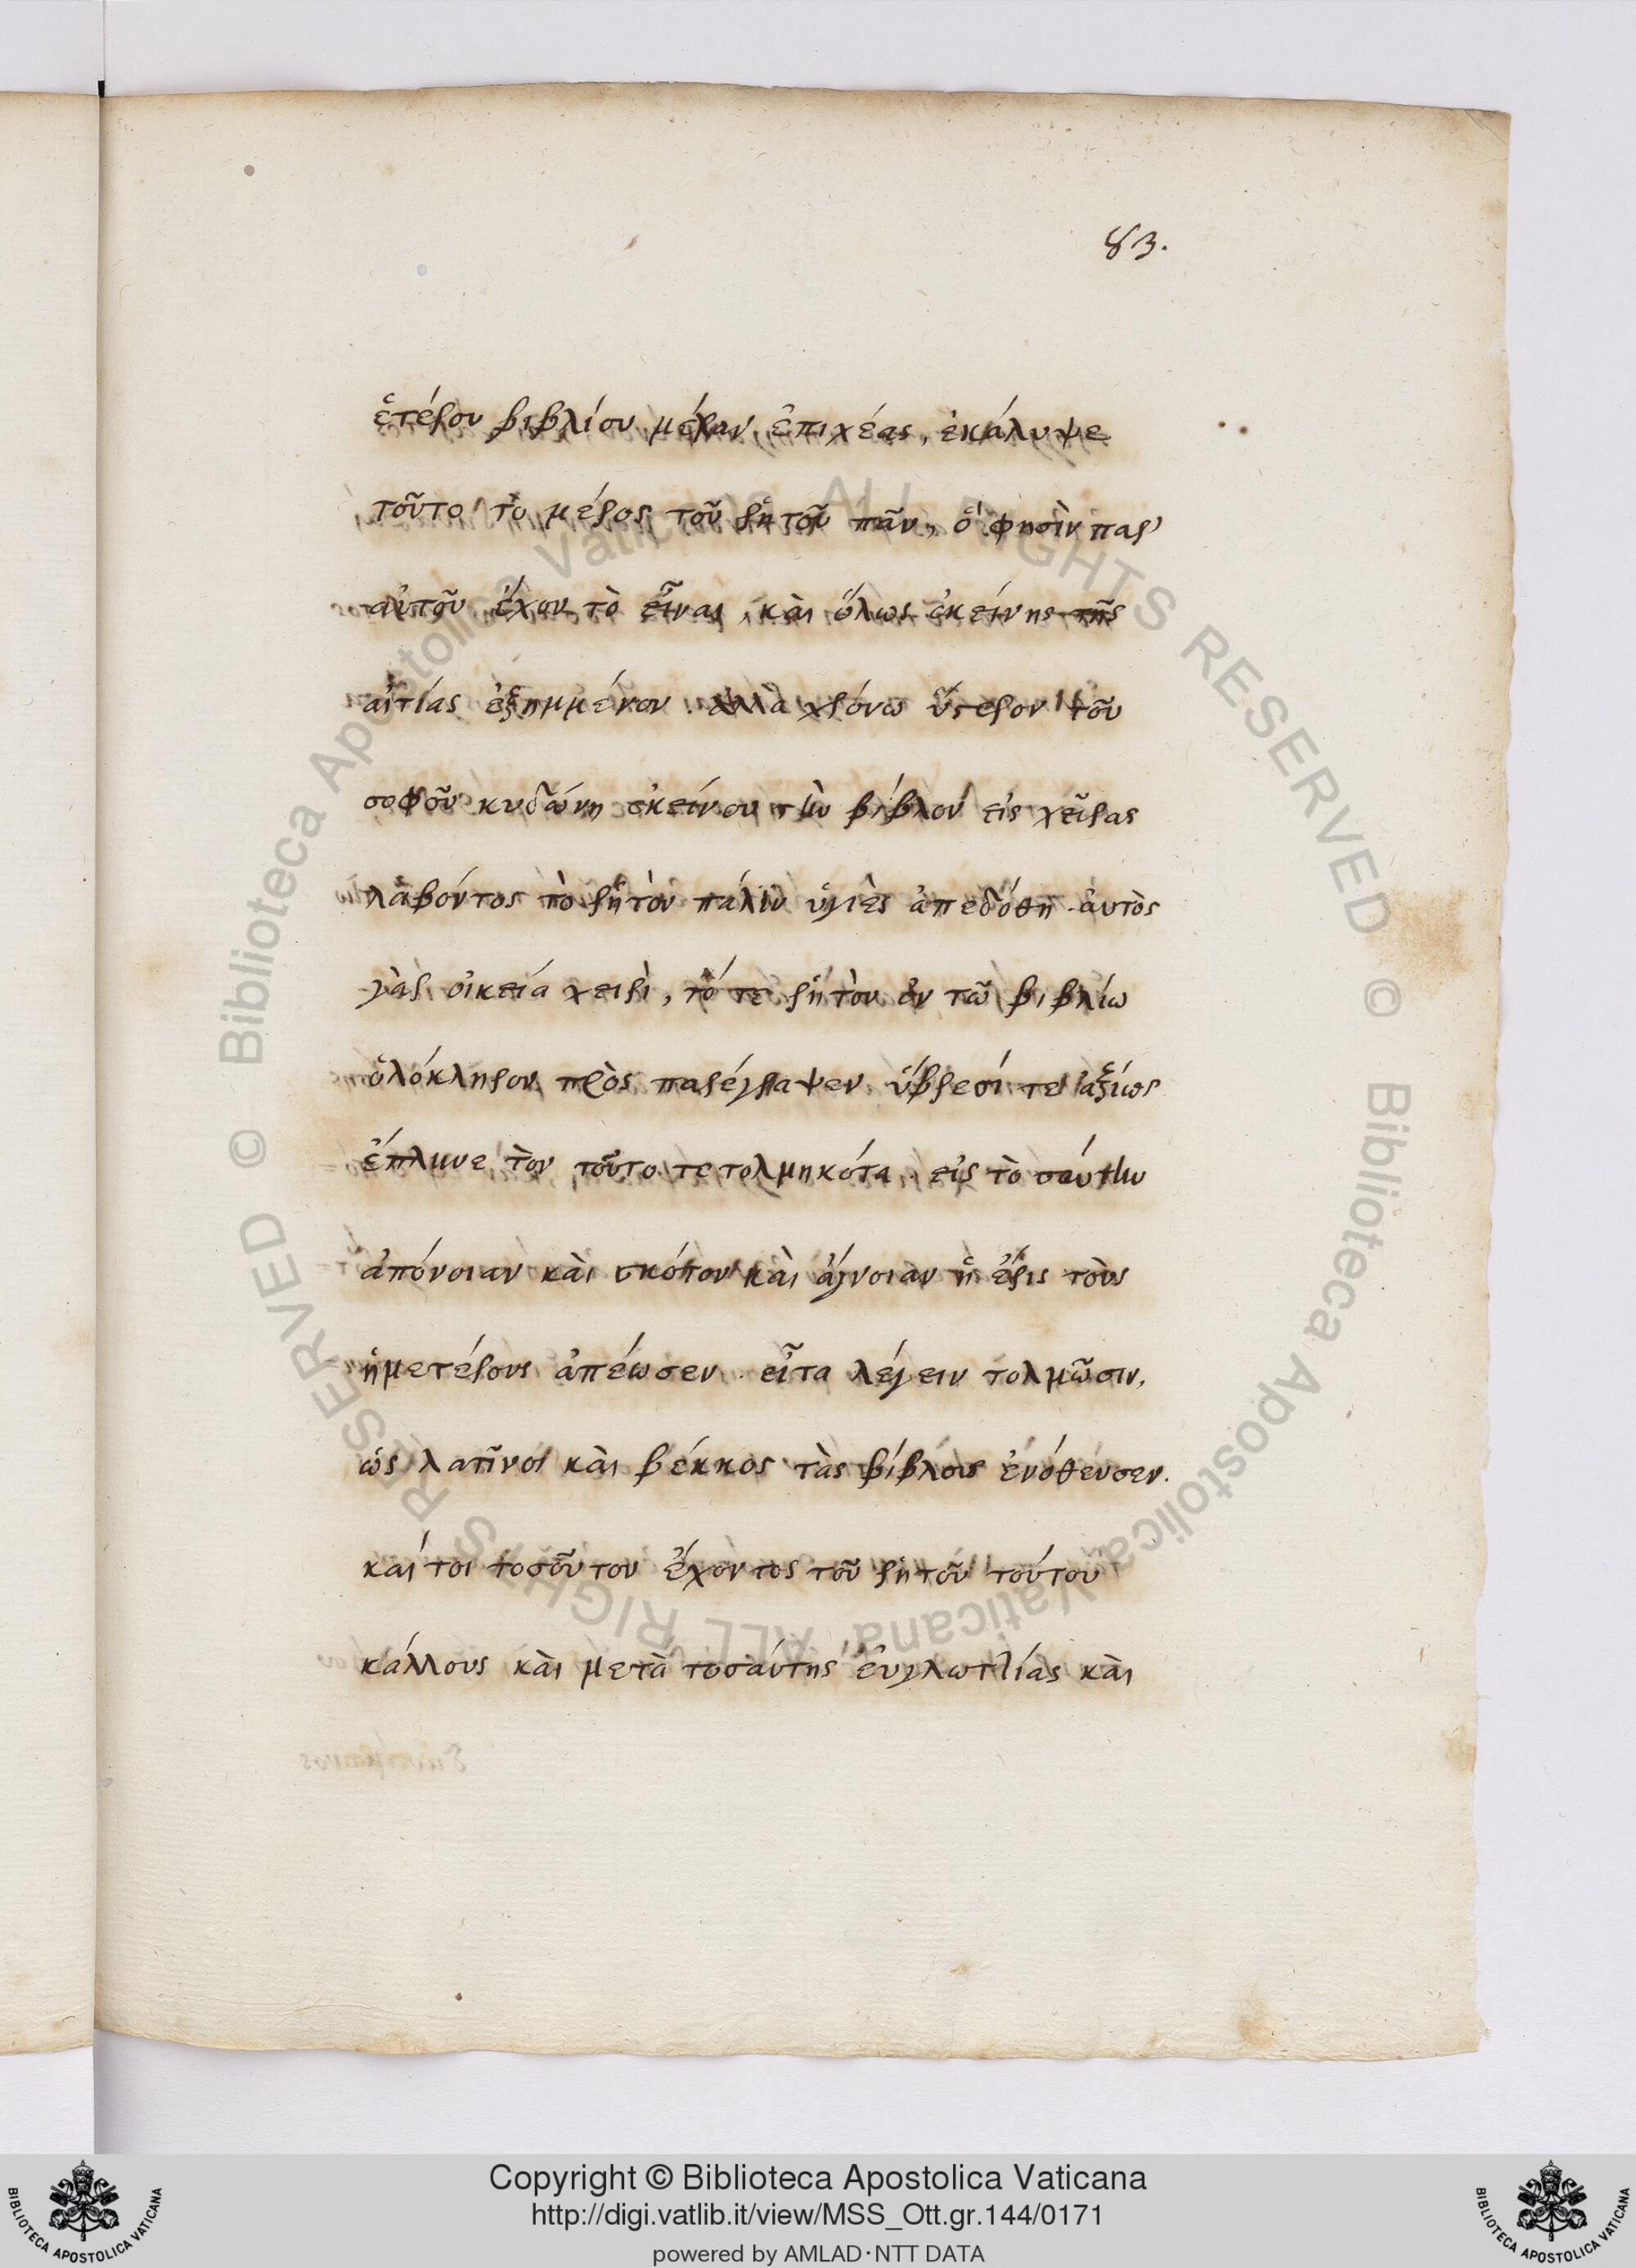 83.
ἑτέρου βιβλίου μέλαν ἐπιχέας, ἐκάλυψε
τοῦτο τὸ μέρος τοῦ ῥητοῦ πᾶν, ὅ φησὶν παρ'
αὐτοῦ ἔχον τὸ εἶναι, καὶ ὅλως ἐκείνης τῆς
αἰτίας ἐξημμένον. ἀλλὰ χρόνω ὕστερον τοῦ
σοφοῦ κυδώνη ἐκείνου τὴν βίβλον εἰς χεῖρας
λαβόντος τὸ ῥητὸν πάλιν ὑγιὲς ἀπεδόθη. ἀυτὸς
γὰρ οἰκεία χειρὶ, τό τε ῥητὸν ἐν τῶ βιβλίω
ὁλόκληρον πρὸς παρέγραψεν ὕβρεσί τε ἀξίως
ἔπλυνε τὸν τοῦτο τετολμηκότα. εἰς τὸ σαύτην
ἀπόνοιαν καὶ σκότον καὶ ἄγνοιαν ἡ ἔρις τοὺς
ἡμετέρους ἀπέωσεν. εἶτα λέγειν τολμῶσιν,
ὡς λατῖνοι καὶ βέκκος τὰς βίβλους ἐνόθευσεν.
καί τοι τοσοῦτον ἔχοντος τοῦ ῥητοῦ τούτου
κάλλους καὶ μετὰ τοσάυτης ἐυγλωττίας καὶ
Biblioteca Apostolica Vaticana ALL RIGHTS RESERVED ©
Biblioteca Apostolica Vaticana ALL RIGHTS RESERVED ©
Copyright © Biblioteca Apostolica Vaticana
http://digi.vatlib.it/view/MSS_Ott.gr.144/0171
powered by AMLAD·NTT DATA
BIBLIOTECA APOSTOLICA VATICANA
BIBLIOTECA APOSTOLICA VATICANA